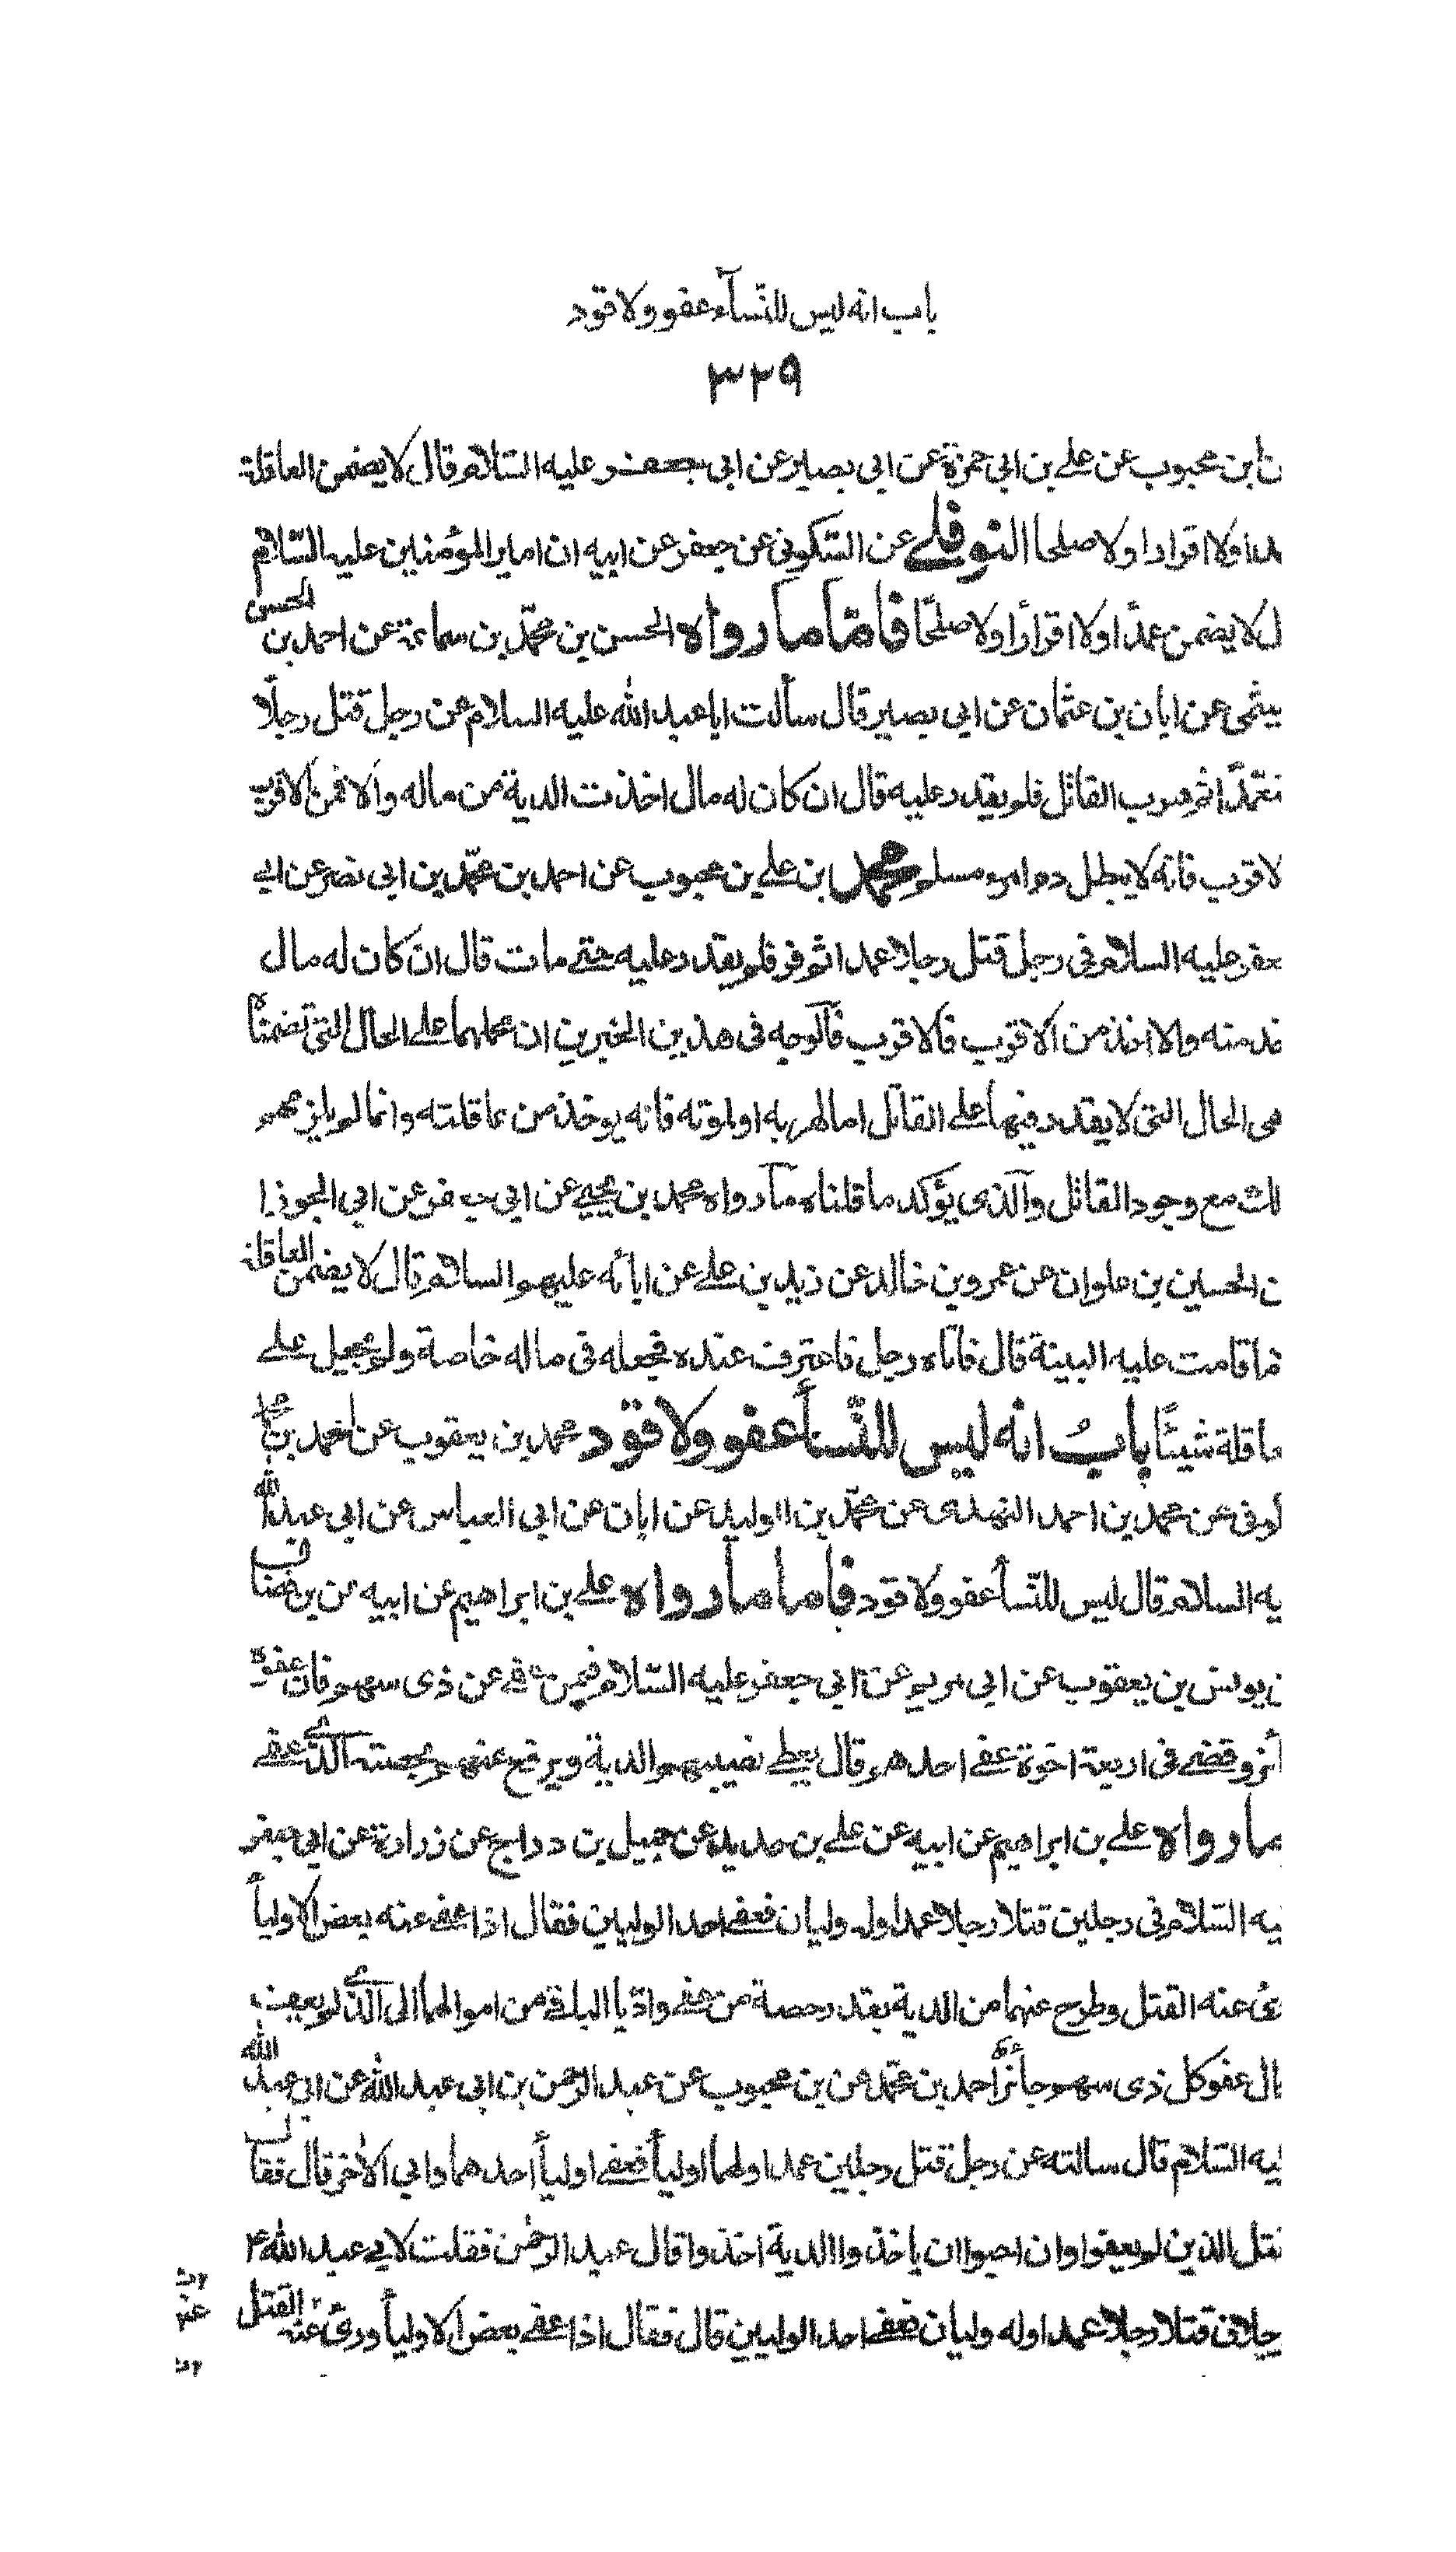 باب انه ليس للنّسآء عفو ولا قود
٣٢٩
ابن محبوب عن علے بن ابى حمزة عن ابى بصير عن ابى جعفر عليه السّلام قال لا يضمن العاقلة
ولا اقرارا ولا صلحا النوفلے عن السّكونى عن جعفر عن ابيه ان امير المؤمنين عليه السّلام
لا يضمن عمدًا ولا اقرارًا ولا صلحًا فامّا ما رواه الحسن بن محمّد بن سماعة عن احمد بن الحسن
عن ابان بن عثمان عن ابى بصير قال سألت ابا عبد الله عليه السلام عن رجل قتل رجلًا
متعمدًا ثم هرب القاتل فلم يقدر عليه قال ان كان له مال اخذت الدية من ماله والا فمن الاقرب
لاقرب فانه لا يبطل دم امرء مسلم محمد ابن علے بن محبوب عن احمد بن محمّد بن ابى نصر عن ابے
جعفر عليه السلام فى رجل قتل رجلا عمدا ثم فر فلم يقدر عليه حتے مات قال ان كان له مال
منه والا اخذ من الاقرب فالاقرب فالوجه فى هذين الخبرين ان نحملهما علے الحال التى تضمناه
الحال التى لا يقدر فيها علے القاتل اما لهربه او لموته فانه يوخذ من عاقلته وانما لم يلزمهم
مع وجود القاتل والذى يؤكد ما قلناه ما رواه محمد بن يحيے عن ابى جعفر عن ابى الجوزا
الحسين بن علوان عن عمرو بن خالد عن زيد بن علے عن ابائه عليهم السلام قال لا يضمن العاقلة
ما قامت عليه البينة قال فاتاه رجل فاعترف عنده فجعله فى ماله خاصة ولم يجعل علے
عاقلة شيئًا باب انه ليس للنّسآ عفو ولا قود محمد بن يعقوب عن احمد بن محمد
عن محمد بن احمد النهدى عن محمّد بن الوليد عن ابان عن ابى العباس عن ابى عبد الله
السلام قال ليس للنّسآ عفو ولا قود فاما ما رواه علے بن ابراهيم عن ابيه عن
يونس بن يعقوب عن ابى مريم عن ابى جعفر عليه السّلام فيمن عفے عن ذى سهم فان عفوه
وقضے فى اربعة اخوة عفے احدهم قال يعطے نصيبهم الدية ويرفع عنهم بحصته الذى عفے
ما رواه علے بن ابراهيم عن ابيه عن علے بن حديد عن جميل بن دراج عن زرارة عن ابى جعفر
السّلام فى رجلين قتلا رجلا عمدا وله وليان فعفے احد الوليين فقال اذا عفے عنه بعض الاوليأ
عنه القتل وطرح عنهما من الدية بقدر حصة من عفے وادّيا الباقے من اموالهما الى الذى لم يعف
عفو كل ذى سهم جائز احمد بن محمّد عن بن محبوب عن عبد الرحمن بن ابى عبد الله عن ابى عبد الله
السّلام قال سالته عن رجل قتل رجلين عمدا ولهما اوليأ فعفے اوليأ احدهما وابى الاخر قال فقال
الذين لم يعفوا وان احبوا ان ياخذوا الدية اخذوا قال عبد الرحمن فقلت لابے عبد الله ٤
رجلان قتلا رجلا عمدا وله وليان فعفے احد الوليين قال فقال اذا عفے بعض الاوليأ درئ عنه القتل